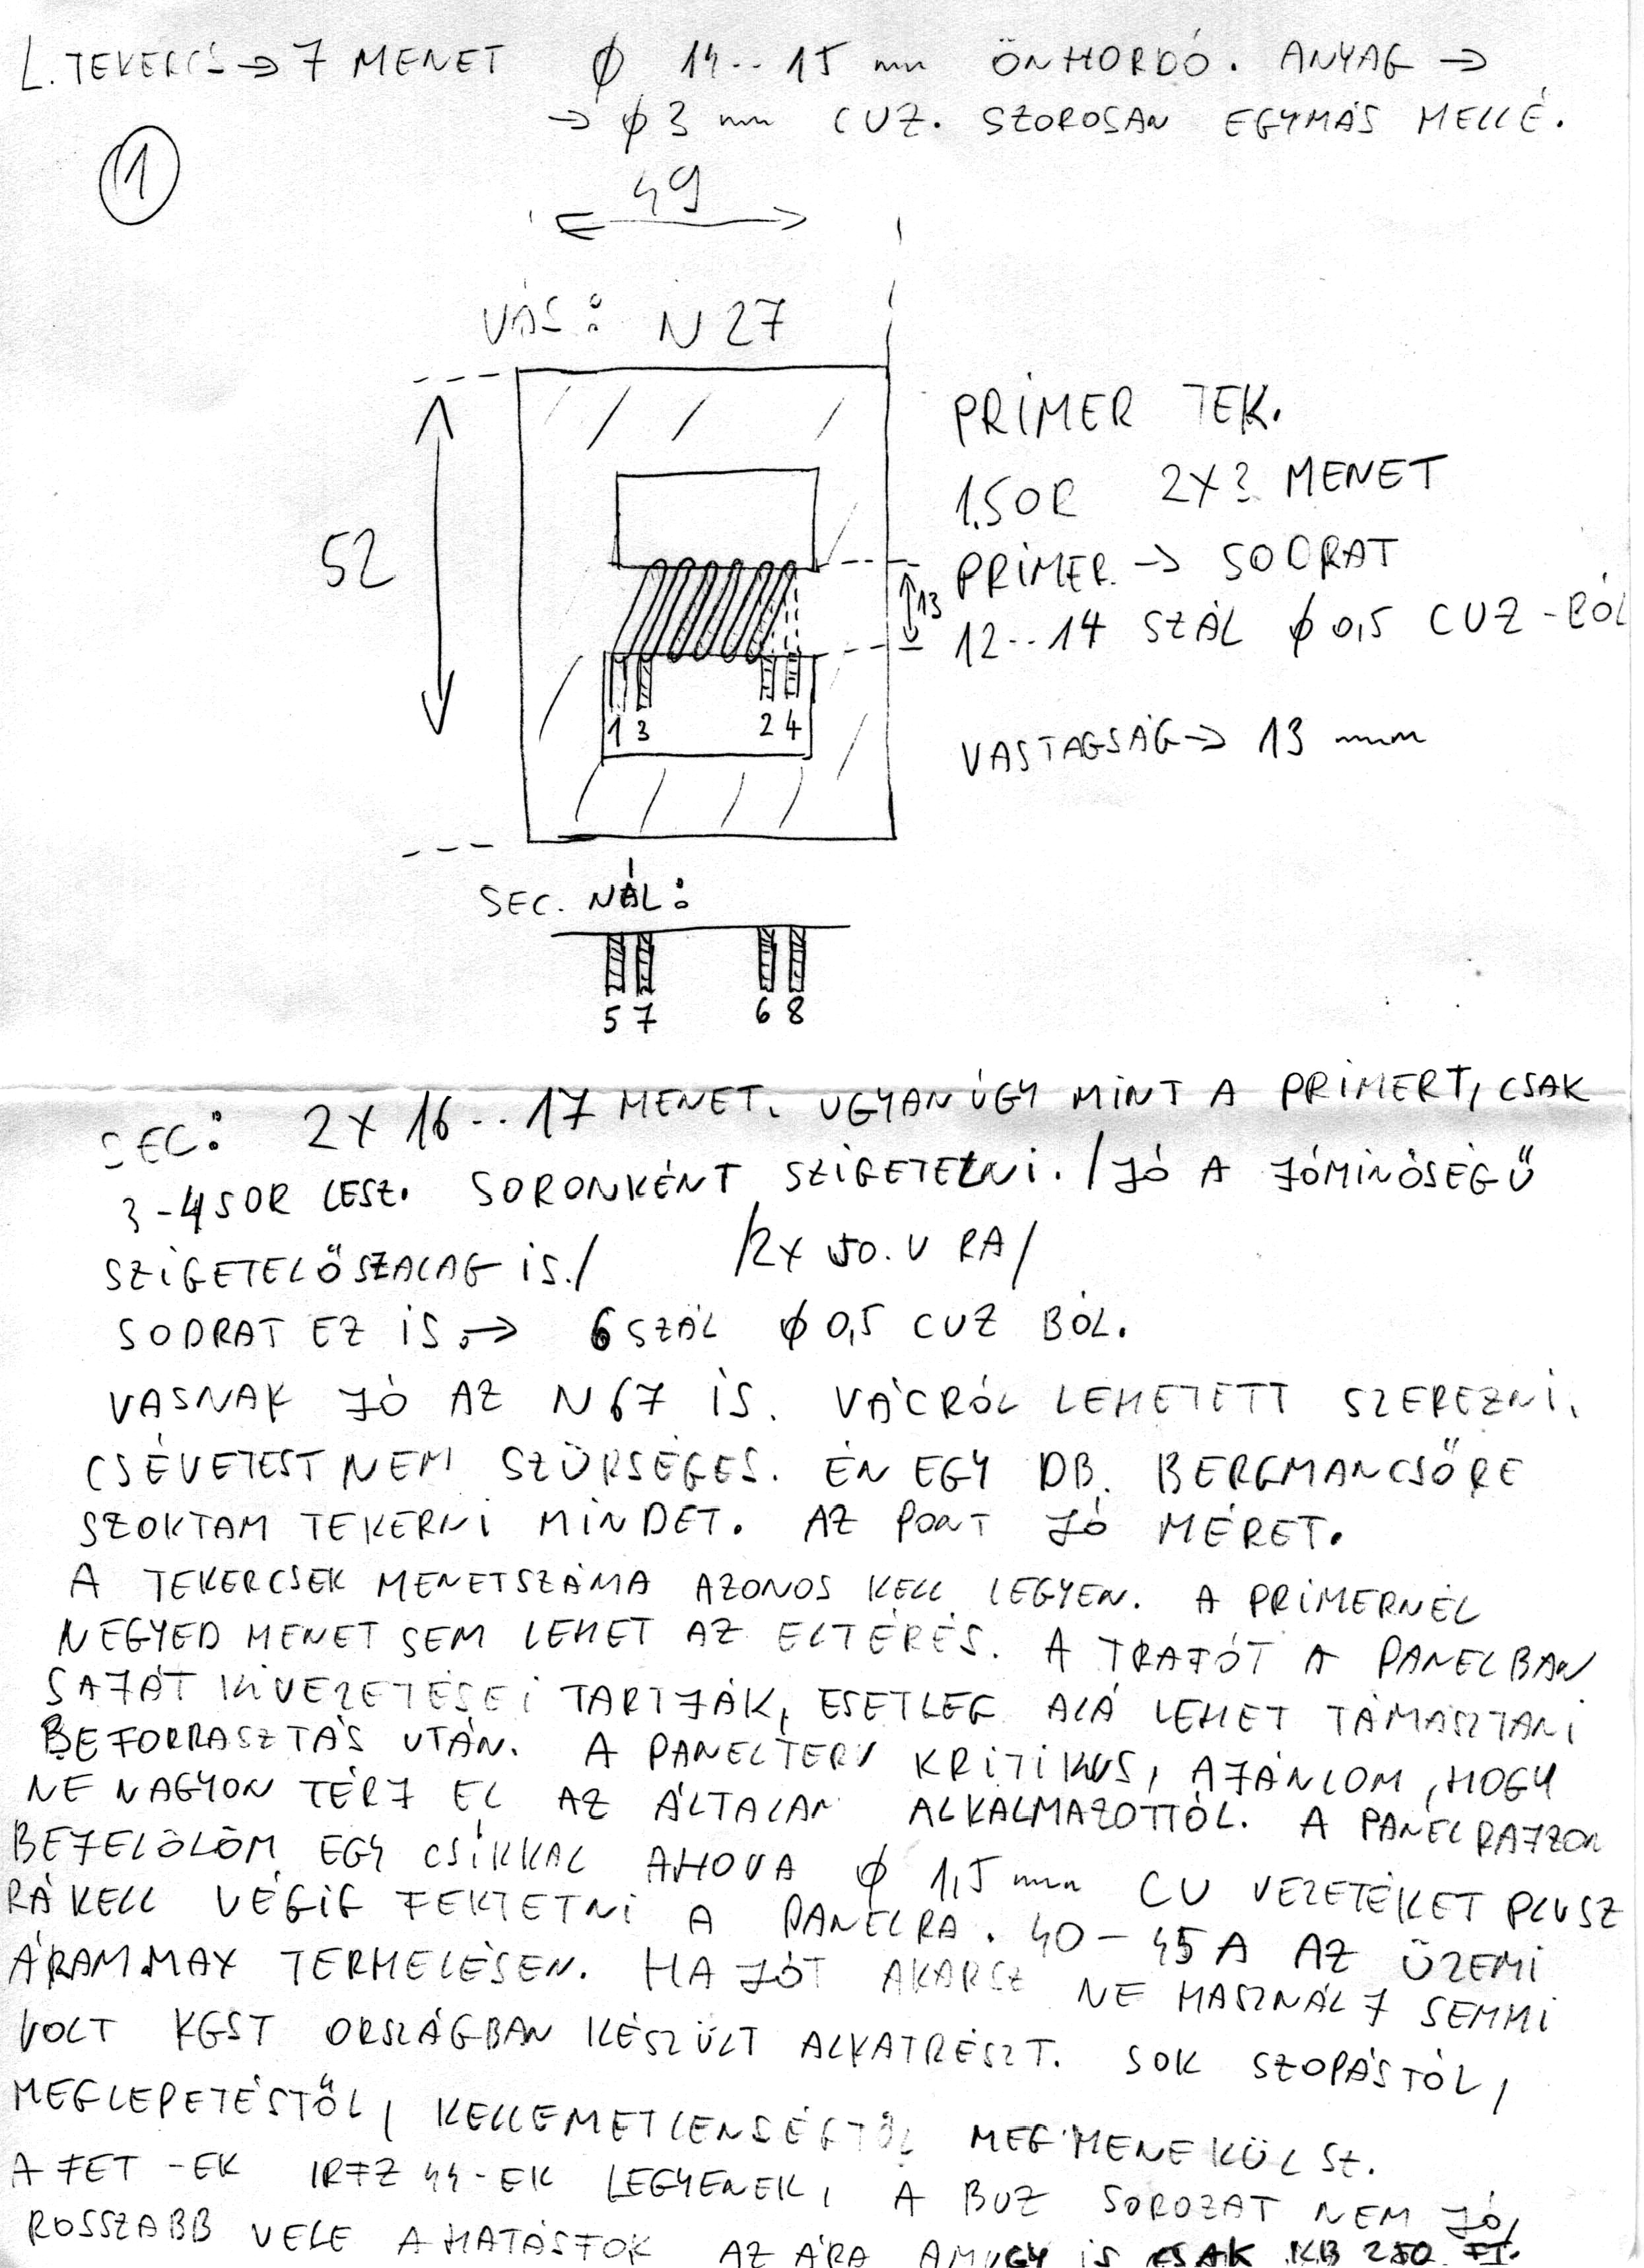 L. TEKERCS → 7 MENET ϕ 14..15 mm ÖNHORDÓ. ANYAG →
→ ϕ 3 mm CUZ. SZOROSAN EGYMÁS MELLÉ.
1
49
VAS: N27
PRIMER TEK.
1.SOR 2X? MENET
52
PRIMER → SODRAT
13
12..14 SZÁL ϕ 0,5 CUZ-BÓL
1 3 2 4
VASTAGSÁG → 13 mm
SEC. NÁL:
5 7 6 8
SEC: 2X 16..17 MENET. UGYANÚGY MINT A PRIMERT, CSAK
3-4 SOR LESZ. SORONKÉNT SZIGETELNI. /JÓ A JÓMINŐSÉGŰ
SZIGETELŐSZALAG IS./ /2X 50.V RA/
SODRAT EZ IS. → 6 SZÁL ϕ 0,5 CUZ BÓL.
VASNAK JÓ AZ N67 IS. VÁCRÓL LEHETETT SZEREZNI.
CSÉVETEST NEM SZÜKSÉGES. ÉN EGY DB. BERGMANCSŐRE
SZOKTAM TEKERNI MINDET. AZ PONT JÓ MÉRET.
A TEKERCSEK MENETSZÁMA AZONOS KELL LEGYEN. A PRIMERNÉL
NEGYED MENET SEM LEHET AZ ELTÉRÉS. A TRAFÓT A PANELBAN
SAJÁT KIVEZETÉSEI TARTJÁK, ESETLEG ALÁ LEHET TÁMASZTANI
BEFORRASZTÁS UTÁN. A PANELTERV KRITIKUS, AJÁNLOM, HOGY
NE NAGYON TÉRJ EL AZ ÁLTALAM ALKALMAZOTTÓL. A PANELRAJZON
BEJELÖLÖM EGY CSÍKKAL AHOVA ϕ 1,5 mm CU VEZETÉKET PLUSZ
RÁ KELL VÉGIG FEKTETNI A PANELRA. 40-45A AZ ÜZEMI
ÁRAM MAX TERHELÉSEN. HA JÓT AKARSZ NE HASZNÁLJ SEMMI
VOLT KGST ORSZÁGBAN KÉSZÜLT ALKATRÉSZT. SOK SZOPÁSTÓL,
MEGLEPETÉSTŐL, KELLEMETLENSÉGTŐL MEGMENEKÜLSZ.
A FET-EK IRFZ44-EK LEGYENEK, A BUZ SOROZAT NEM JÓ,
ROSSZABB VELE A HATÁSFOK AZ ÁRA AMÚGY IS CSAK KB 250 FT.